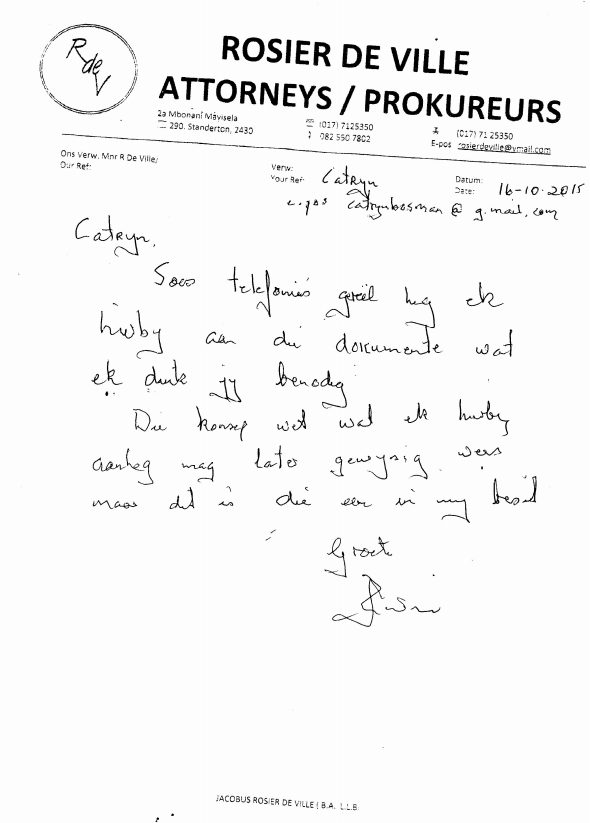 R de V
ROSIER DE VILLE
ATTORNEYS / PROKUREURS
2a Mbonani Mavisela
290. Standerton, 2430
(017) 7125350
082 550 7802
(017) 71 25350
E-pos rosierdeville@vmail.com
Ons verw. Mnr R De Ville/
Our Ref:
Verw:
Your Ref: Catryn
Datum:
Date: 16-10-2015
e-pos catrynbosman@g.mail.com
Catryn,
Soos telefonies gereël heg ek
hierby aan die dokumente wat
ek dink jy benodig
Die konsep wet wat ek hierby
aanheg mag later gewysig wees
maar dit is die een in my besit
Groete
JACOBUS ROSIER DE VILLE ( B.A. L.L.B.